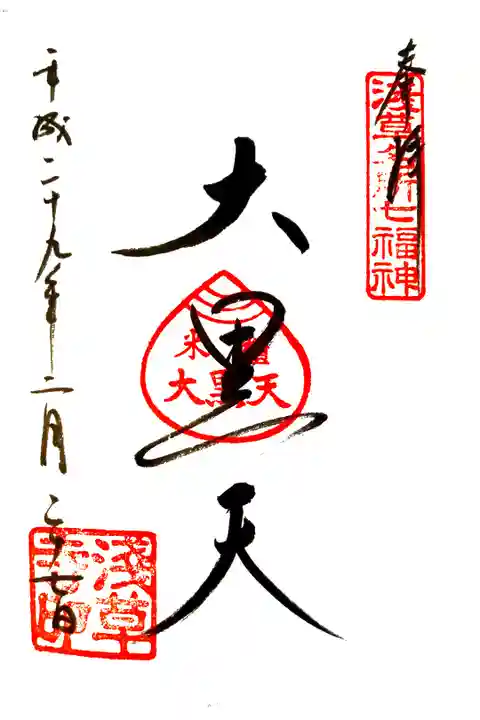 奉拝
浅草名所七福神
大黒天
米櫃
大黒天
平成二十九年二月二十七日
浅草
寺印